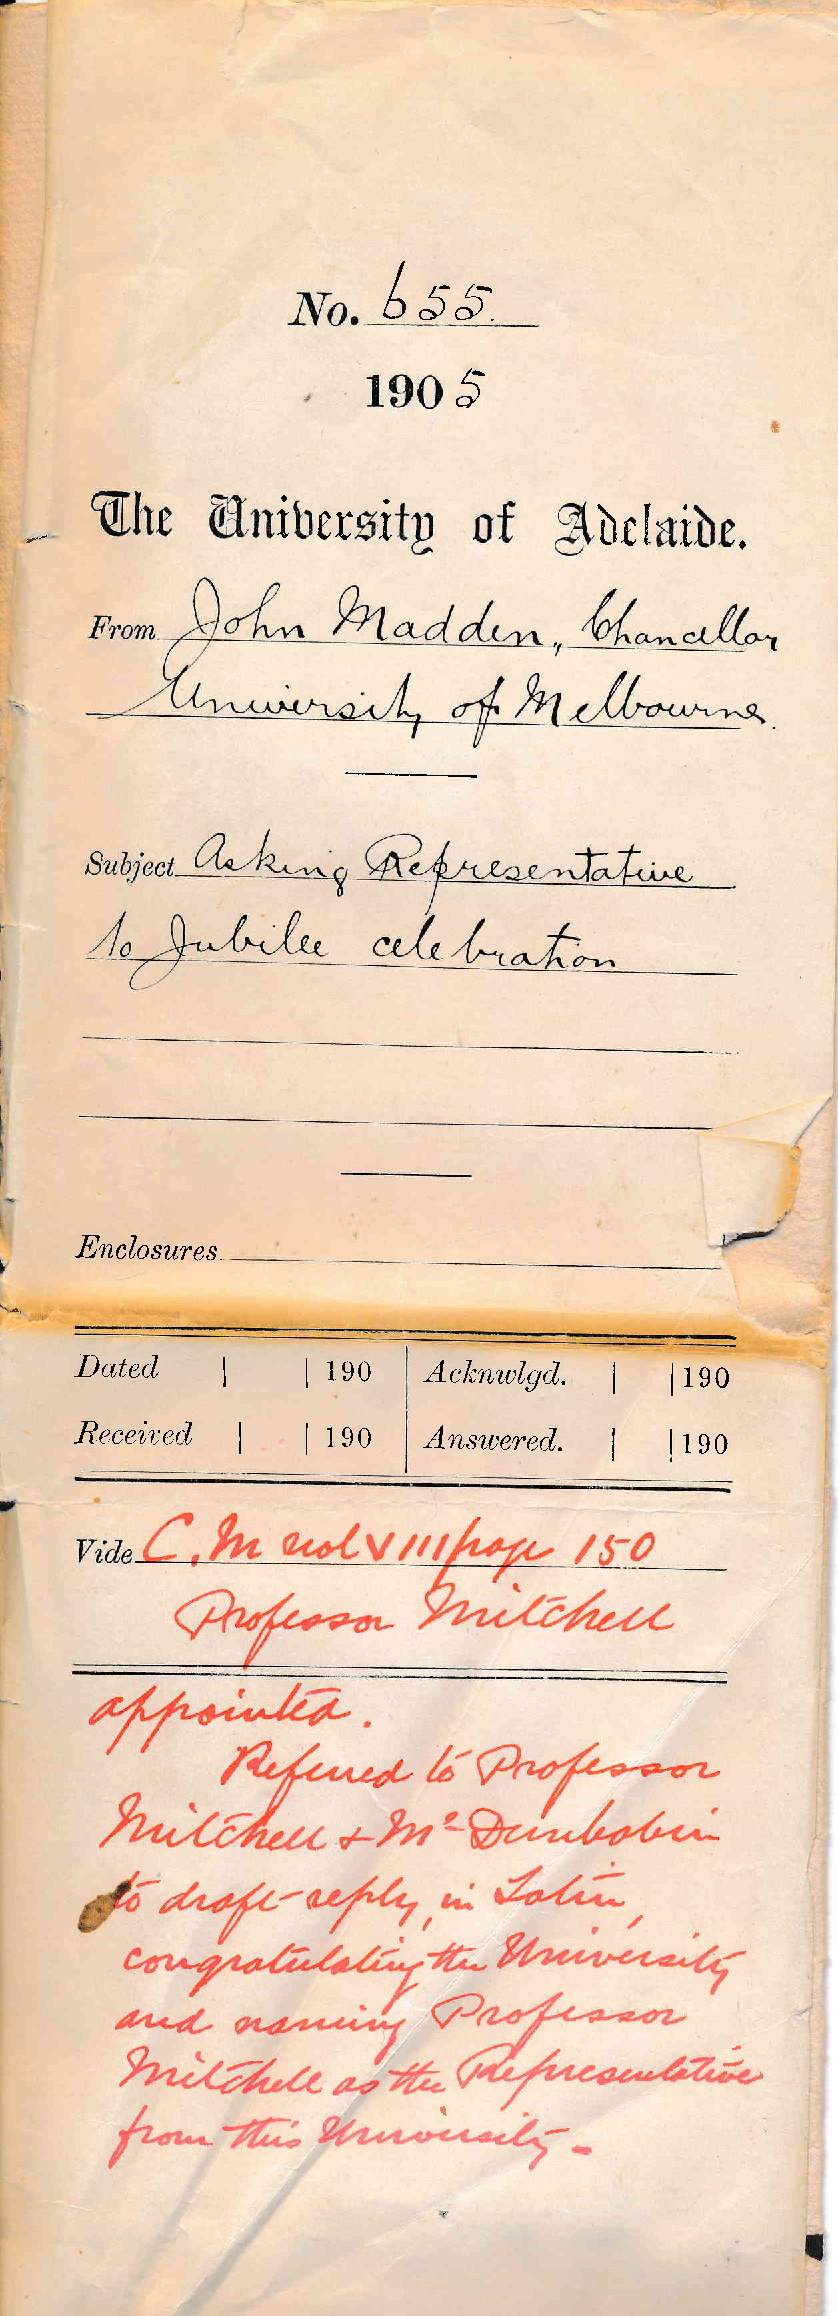 No. 655.
1905
The University of Adelaide.
From John Madden, Chancellor
University of Melbourne.
Subject Asking Representative
to Jubilee celebration
Enclosures
Dated | | 190 | Acknwlgd. | | 190
Received | | 190 | Answered. | | 190
Vide C. M vol VIII page 150
Professor Mitchell
appointed.
Referred to Professor
Mitchell & Mr Dunbabin
to draft reply, in Latin,
congratulating the University
and naming Professor
Mitchell as the Representative
from this University -